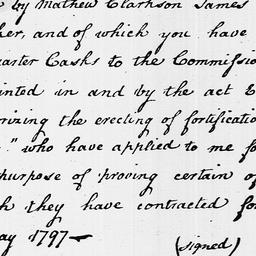 by Mathew Clarkson James
her, and of which you have
uarter Casks to the Commissio
inted in and by the act
rizing the erecting of fortificatio
" who have applied to me fo
purpose of proving certain of
h they have contracted for
ay 1797
(signed)